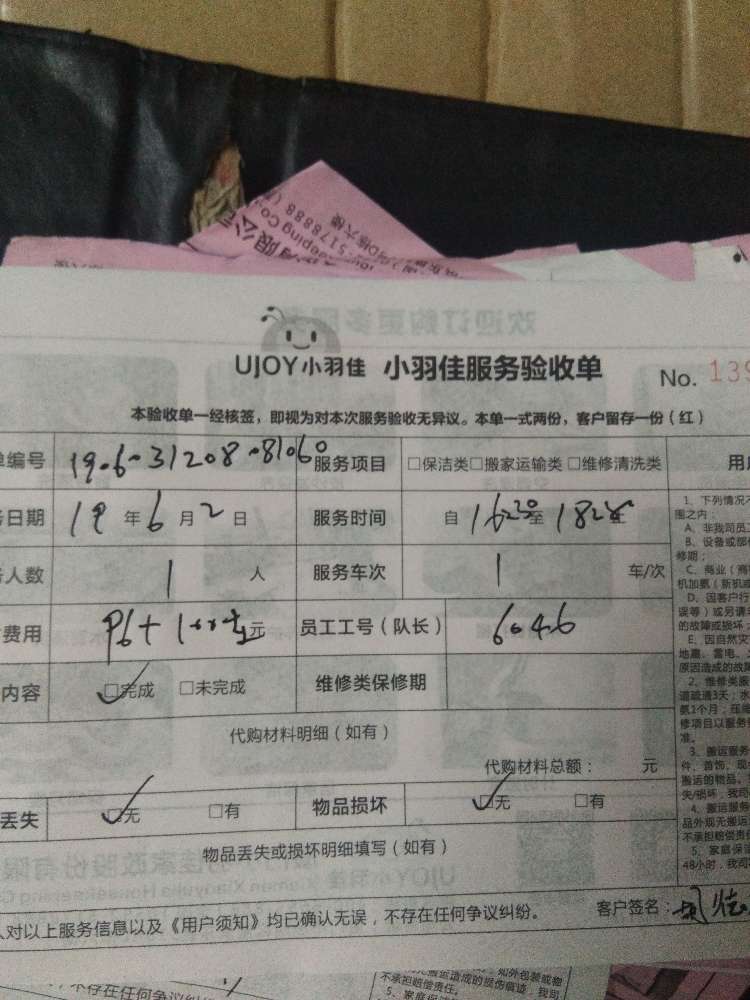 UJOY小羽佳 小羽佳服务验收单 No. 139
本验收单一经核签，即视为对本次服务验收无异议。本单一式两份，客户留存一份（红）
单编号 1906-31208-81060 服务项目 □保洁类□搬家运输类 □维修清洗类
务日期 19 年 6 月 2 日 服务时间 自 至
务人数 1 人 服务车次 1 车/次
费用 元 员工工号（队长） 6046
内容 □完成 □未完成 维修类保修期
代购材料明细（如有）
代购材料总额： 元
丢失 □无 □有 物品损坏 □无 □有
物品丢失或损坏明细填写（如有）
人对以上服务信息以及《用户须知》均已确认无误，不存在任何争议纠纷。 客户签名：
用户
1、下列情况不
围之内：
A、非我司员工
B、设备或部件
修期；
C、商业（商
机加氨（新机或
D、因客户行
误等）或另请
的故障或损坏；
E、因自然灾
地震、雷电、
原因造成的故障
2、维修类服
道疏通3天；水
氨1个月；压缩
修项目以服务
准。
3、搬运服务
件、首饰、现
搬运的物品，
4、搬运服务
品外观无搬运
不承担赔偿责
5、家庭保洁
48小时，我司
不存在任何争议纠纷
无搬运造成的损伤痕迹，我司
不承担赔偿责任。
5、家庭保洁